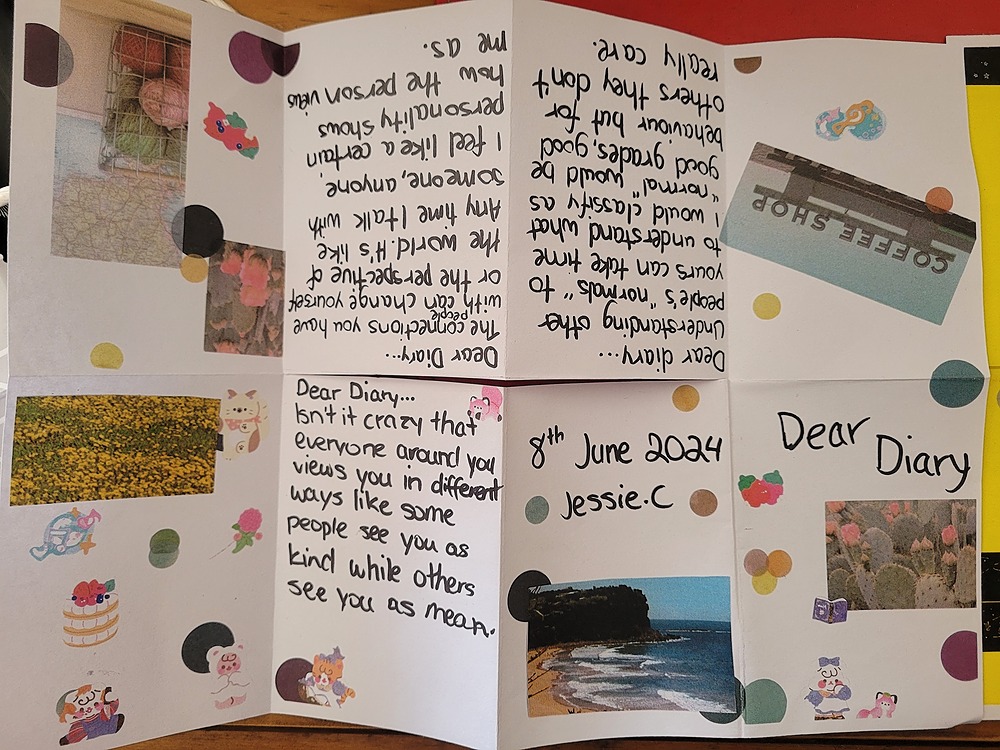 Dear
Diary
8th June 2024
Jessie.C
Dear Diary...
Isn't it crazy that
everyone around you
views you in different
ways like some
people see you as
kind while others
see you as mean.
Dear Diary...
The connections you have
with people can change yourself
or the perspective of
the world. It's like
Any time I talk with
someone, anyone
I feel like a certain
personality shows
how the person views
me as.
Dear diary...
Understanding other
people's "normals" to
yours can take time
to understand what
I would classify as
"normal" would be
good grades, good
behaviour but for
others they don't
really care.
COFFEE SHOP